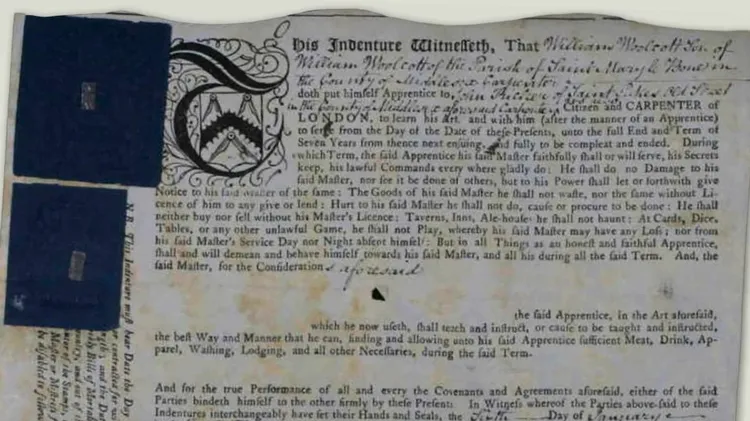 This Indenture Witnesseth, That William Woolcott Son of
William Woolcott of the Parish of Saint Mary le Bone in
the County of Middlesex Carpenter
doth put himself Apprentice to John of Saint Street
in the County of Middlesex aforesaid Citizen and CARPENTER of
LONDON, to learn his Art, and with him (after the manner of an Apprentice)
to serve from the Day of the Date of these Presents, unto the full End and Term of
Seven Years from thence next ensuing, and fully to be compleat and ended. During
which Term, the said Apprentice his said Master faithfully shall or will serve, his Secrets
keep, his lawful Commands every where gladly do: He shall do no Damage to his
said Master, nor see it be done of others, but to his Power shall let or forthwith give
Notice to his said Master of the same: The Goods of his said Master he shall not waste, nor the same without Li-
cence of him to any give or lend: Hurt to his said Master he shall not do, cause or procure to be done: He shall
neither buy nor sell without his Master's Licence: Taverns, Inns, Ale-houses he shall not haunt: At Cards, Dice,
Tables, or any other unlawful Game, he shall not Play, whereby his said Master may have any Loss; nor from
his said Master's Service Day nor Night absent himself: But in all Things as an honest and faithful Apprentice,
shall and will demean and behave himself towards his said Master, and all his during all the said Term. And, the
said Master, for the Considerations aforesaid
the said Apprentice, in the Art aforesaid,
which he now useth, shall teach and instruct, or cause to be taught and instructed,
the best Way and Manner that he can, finding and allowing unto his said Apprentice sufficient Meat, Drink, Ap-
parel, Washing, Lodging, and all other Necessaries, during the said Term.
And for the true Performance of all and every the Covenants and Agreements aforesaid, either of the said
Parties bindeth himself to the other firmly by these Presents. In Witness whereof the Parties above-said to these
Indentures interchangeably have set their Hands and Seals, the Sixth Day of January
N.B. This Indenture must bear Date the Day